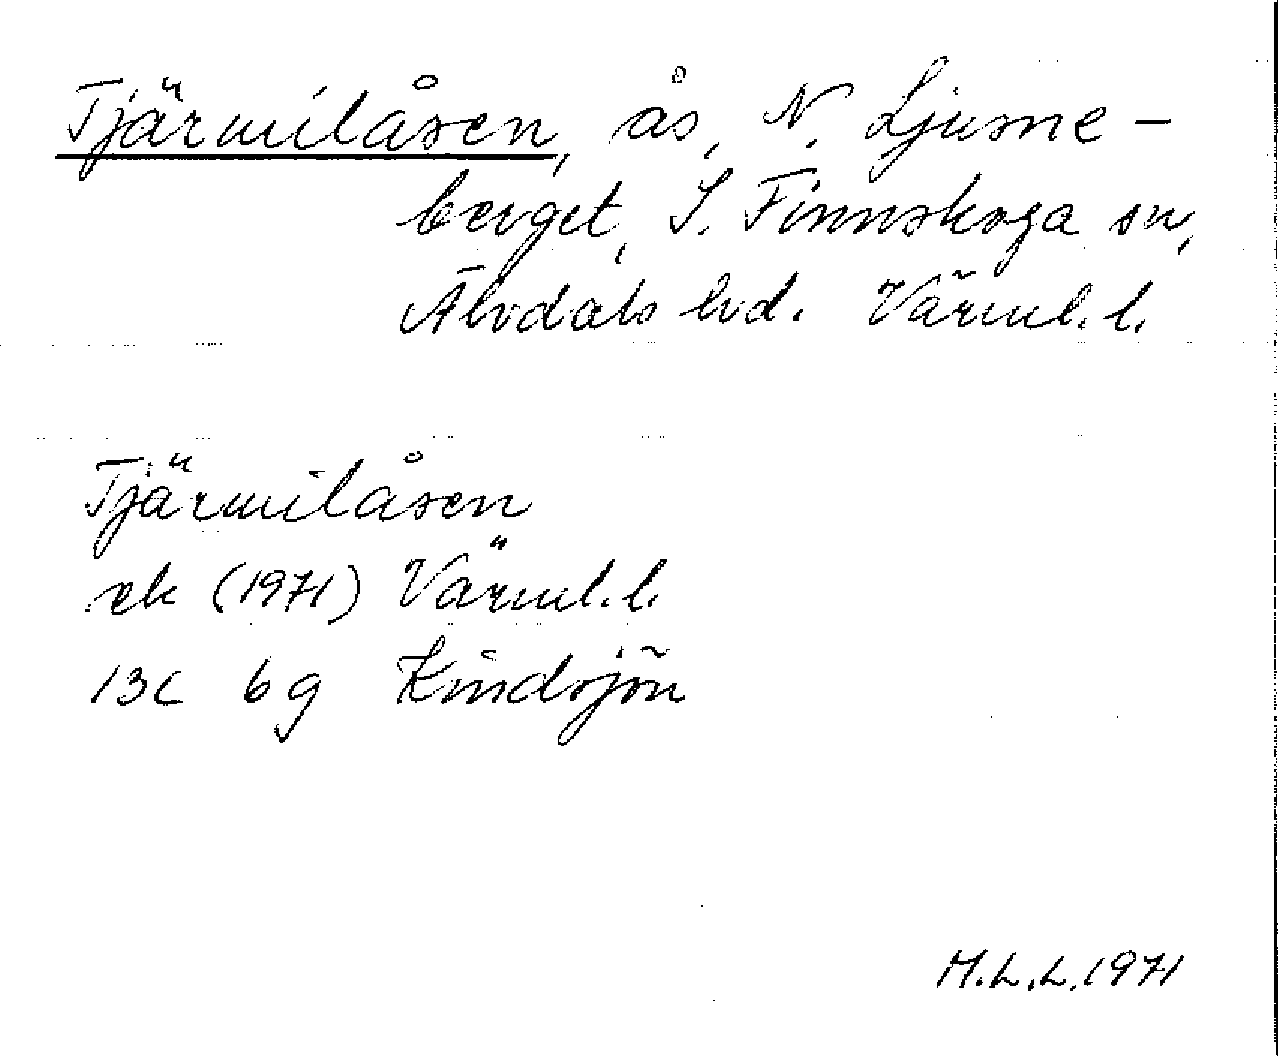 Tjärmilåsen, ås, N. Ljusne-
berget, S. Finnskoga sn,
Älvdals hd. Värml. l.
Tjärmilåsen
ek (1971) Värml. l.
13C 6g Kindsjön
M.L.L. 1971